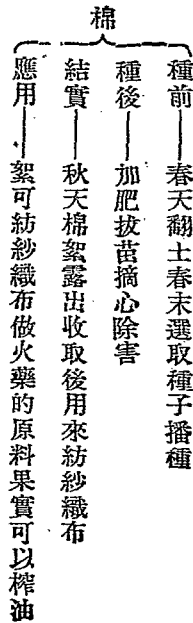 棉
種前——春天翻土春末選取種子播種
種後——加肥拔苗摘心除害
結實——秋天棉絮露出收取後用來紡紗織布
應用——絮可紡紗織布做火藥的原料果實可以榨油